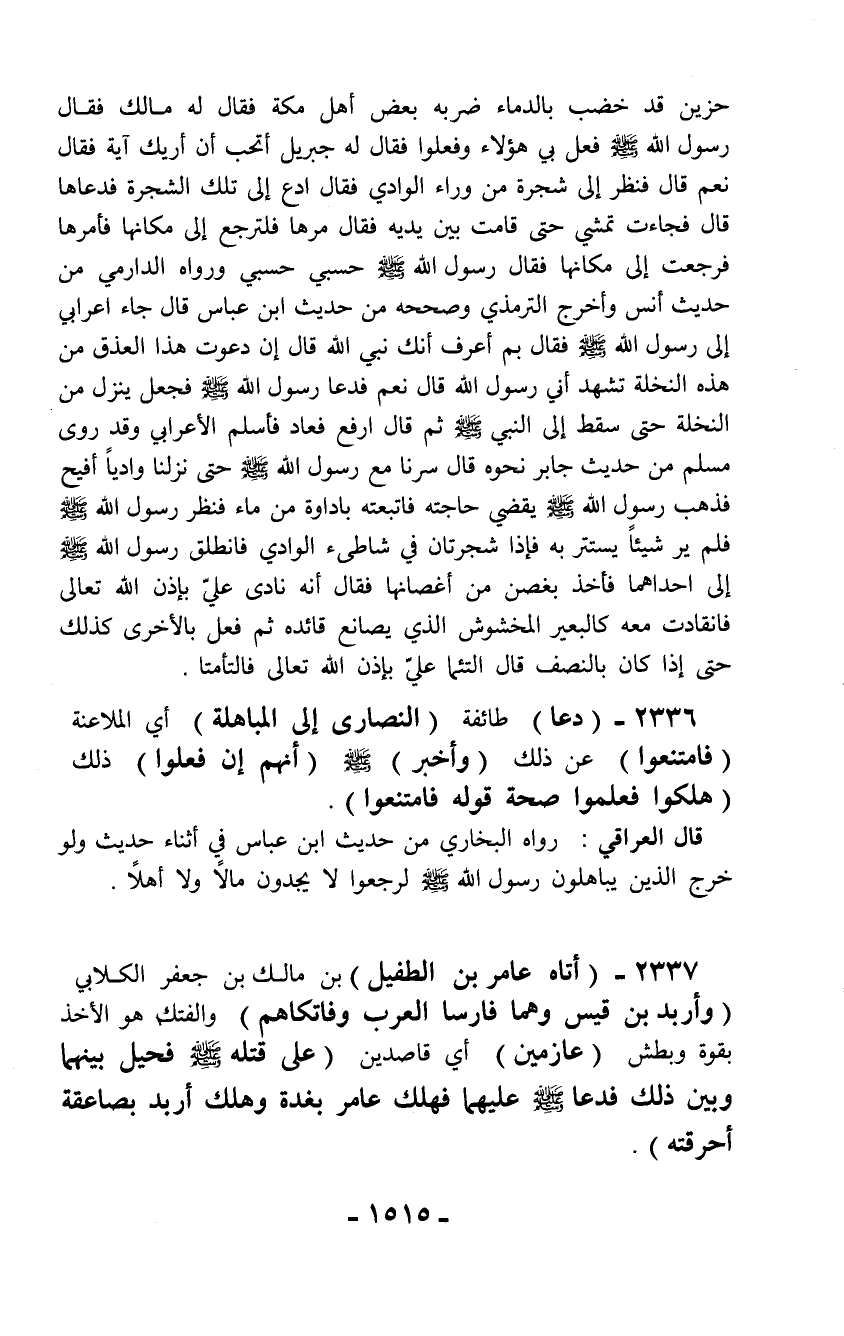 حزين قد خضب بالدماء ضربه بعض أهل مكة فقال له مالك فقال
رسول الله ﷺ فعل بي هؤلاء وفعلوا فقال له جبريل أتحب أن أريك آية فقال
نعم قال فنظر إلى شجرة من وراء الوادي فقال ادع إلى تلك الشجرة فدعاها
قال فجاءت تمشي حتى قامت بين يديه فقال مرها فلترجع إلى مكانها فأمرها
فرجعت إلى مكانها فقال رسول الله ﷺ حسبي حسبي ورواه الدارمي من
حديث أنس وأخرج الترمذي وصححه من حديث ابن عباس قال جاء اعرابي
إلى رسول الله ﷺ فقال بم أعرف أنك نبي الله قال إن دعوت هذا العذق من
هذه النخلة تشهد أني رسول الله قال نعم فدعا رسول الله ﷺ فجعل ينزل من
النخلة حتى سقط إلى النبي ﷺ ثم قال ارفع فعاد فأسلم الأعرابي وقد روى
مسلم من حديث جابر نحوه قال سرنا مع رسول الله ﷺ حتى نزلنا وادياً أفيح
فذهب رسول الله ﷺ يقضي حاجته فاتبعته باداوة من ماء فنظر رسول الله ﷺ
فلم ير شيئاً يستتر به فإذا شجرتان في شاطىء الوادي فانطلق رسول الله ﷺ
إلى احداهما فأخذ بغصن من أغصانها فقال أنه نادى عليّ بإذن الله تعالى
فانقادت معه كالبعير المخشوش الذي يصانع قائده ثم فعل بالأخرى كذلك
حتى إذا كان بالنصف قال التئما عليّ بإذن الله تعالى فالتأمتا .
٢٣٣٦ ـ ( دعا ) طائفة ( النصارى إلى المباهلة ) أي الملاعنة
( فامتنعوا ) عن ذلك ( وأخبر ) ﷺ ( أنهم إن فعلوا ) ذلك
( هلكوا فعلموا صحة قوله فامتنعوا ) .
قال العراقي : رواه البخاري من حديث ابن عباس في أثناء حديث ولو
خرج الذين يباهلون رسول الله ﷺ لرجعوا لا يجدون مالاً ولا أهلاً .
٢٣٣٧ ـ ( أتاه عامر بن الطفيل ) بن مالك بن جعفر الكلابي
( وأربد بن قيس وهما فارسا العرب وفاتكاهم ) والفتك هو الأخذ
بقوة وبطش ( عازمين ) أي قاصدين ( على قتله ﷺ فحيل بينهما
وبين ذلك فدعا ﷺ عليهما فهلك عامر بغدة وهلك أربد بصاعقة
أحرقته ) .
ـ ١٥١٥ ـ